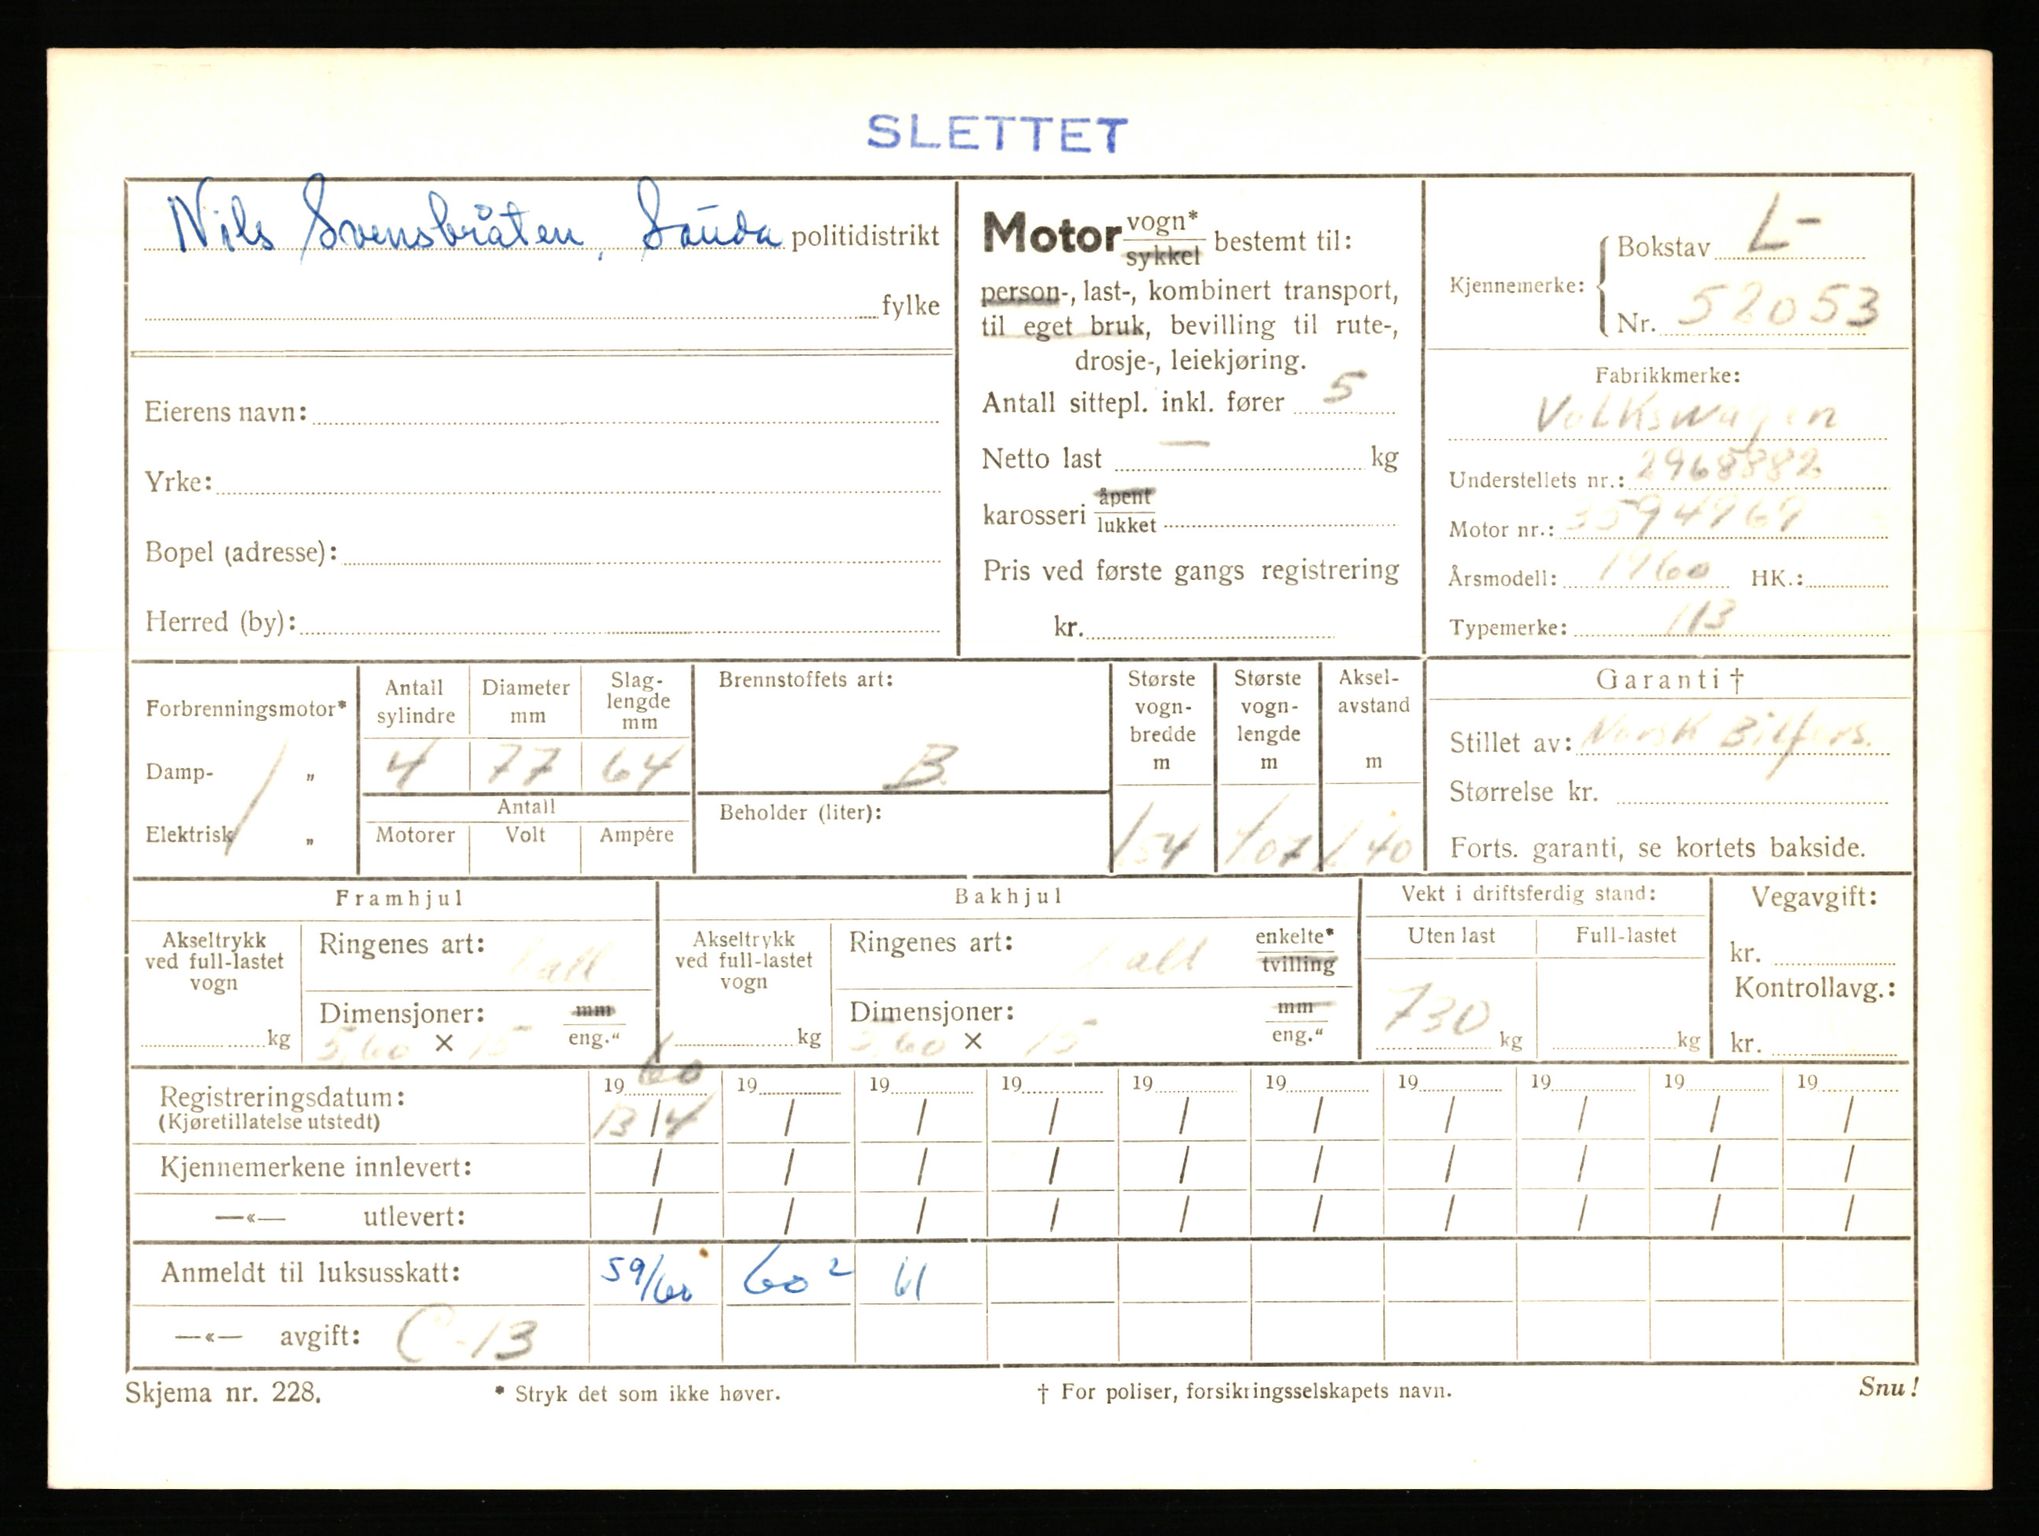 SLETTET
Nils Svensbråten, Sauda politidistrikt
fylke
Eierens navn:
Yrke:
Bopel (adresse):
Herred (by):
Motor vogn* sykkel bestemt til:
person-, last-, kombinert transport,
til eget bruk, bevilling til rute-,
drosje-, leiekjøring.
Antall sittepl. inkl. fører 5
Netto last — kg
karosseri åpent lukket
Pris ved første gangs registrering
kr.
Kjennemerke: Bokstav L-
Nr. 52053
Fabrikkmerke:
Volkswagen
Understellets nr.: 2968882
Motor nr.:
Årsmodell: 1960 HK.:
Typemerke: 113
Forbrenningsmotor*
Damp- „
Elektrisk „
Antall sylindre
4
Diameter mm
77
Slag-
lengde
mm
64
Antall
Motorer Volt Ampére
Brennstoffets art:
B.
Beholder (liter):
Største
vogn-
bredde
m
154
Største
vogn-
lengde
m
407
Aksel-
avstand
m
2.40
Garanti †
Stillet av: Norsk Bilfors.
Størrelse kr.
Forts. garanti, se kortets bakside.
Framhjul
Akseltrykk
ved full-lastet
vogn
kg
Ringenes art:
Dimensjoner: mm
5,60 × 15 eng.“
Bakhjul
Akseltrykk
ved full-lastet
vogn
kg
Ringenes art: enkelte*
tvilling
Dimensjoner: mm
5,60 × 15 eng.“
Vekt i driftsferdig stand:
Uten last Full-lastet
730 kg kg
Vegavgift:
kr.
Kontrollavg.:
kr.
Registreringsdatum: 1960 19 19 19 19 19 19 19 19 19
(Kjøretillatelse utstedt) 13/4 / / / / / / / / /
Kjennemerkene innlevert: / / / / / / / / / /
—«— utlevert: / / / / / / / / / /
Anmeldt til luksusskatt: 59/60 60² 61
—«— avgift: C-13
Skjema nr. 228. * Stryk det som ikke høver. † For poliser, forsikringsselskapets navn. Snu!